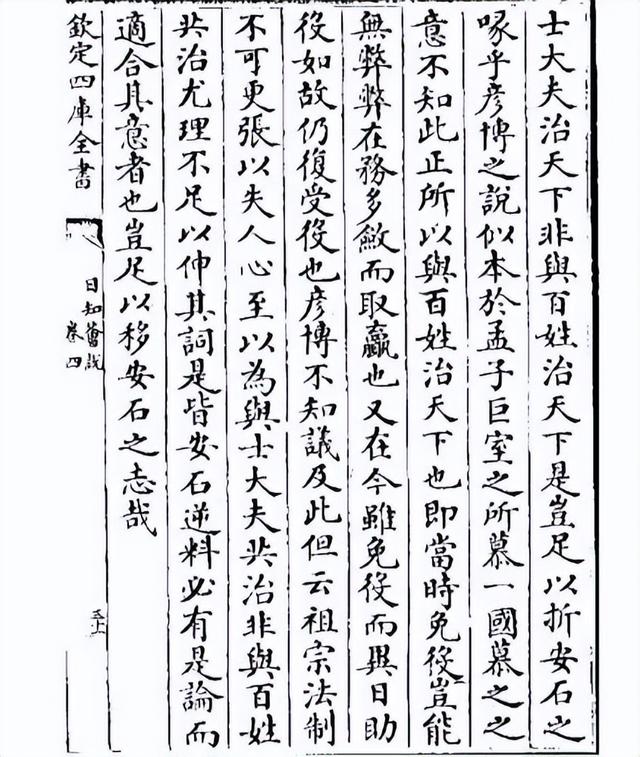 士大夫治天下非與百姓治天下是豈足以折安石之
喙乎彦博之說似本於孟子巨室之所慕一國慕之之
意不知此正所以與百姓治天下也即當時免役豈能
無弊弊在務多斂而取贏也又在今雖免役而異日助
役如故仍復受役也彦博不知議及此但云祖宗法制
不可更張以失人心至以為與士大夫共治非與百姓
共治尤理不足以伸其詞是皆安石逆料必有是論而
適合其意者也豈足以移安石之志哉
欽定四庫全書
日知薈說
卷四